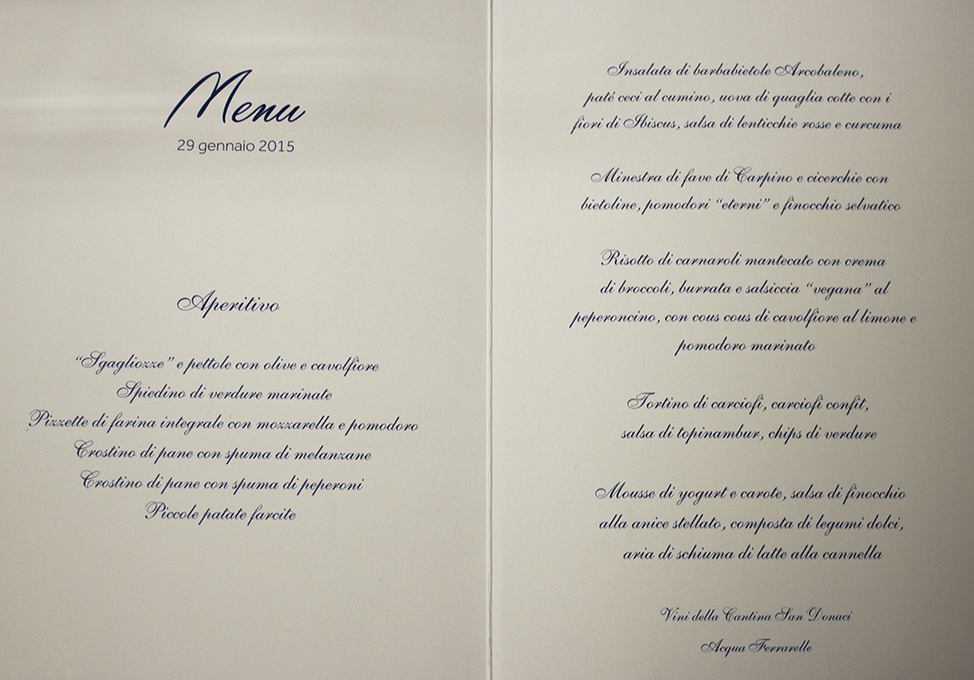 Menu
29 gennaio 2015
Aperitivo
“Sgagliozze” e pettole con olive e cavolfiore
Spiedino di verdure marinate
Pizzette di farina integrale con mozzarella e pomodoro
Crostino di pane con spuma di melanzane
Crostino di pane con spuma di peperoni
Piccole patate farcite
Insalata di barbabietole Arcobaleno,
paté ceci al cumino, uova di quaglia cotte con i
fiori di Ibiscus, salsa di lenticchie rosse e curcuma
Minestra di fave di Carpino e cicerchie con
bietoline, pomodori “eterni” e finocchio selvatico
Risotto di carnaroli mantecato con crema
di broccoli, burrata e salsiccia “vegana” al
peperoncino, con cous cous di cavolfiore al limone e
pomodoro marinato
Tortino di carciofi, carciofi confit,
salsa di topinambur, chips di verdure
Mousse di yogurt e carote, salsa di finocchio
alla anice stellato, composta di legumi dolci,
aria di schiuma di latte alla cannella
Vini della Cantina San Donaci
Acqua Ferrarelle